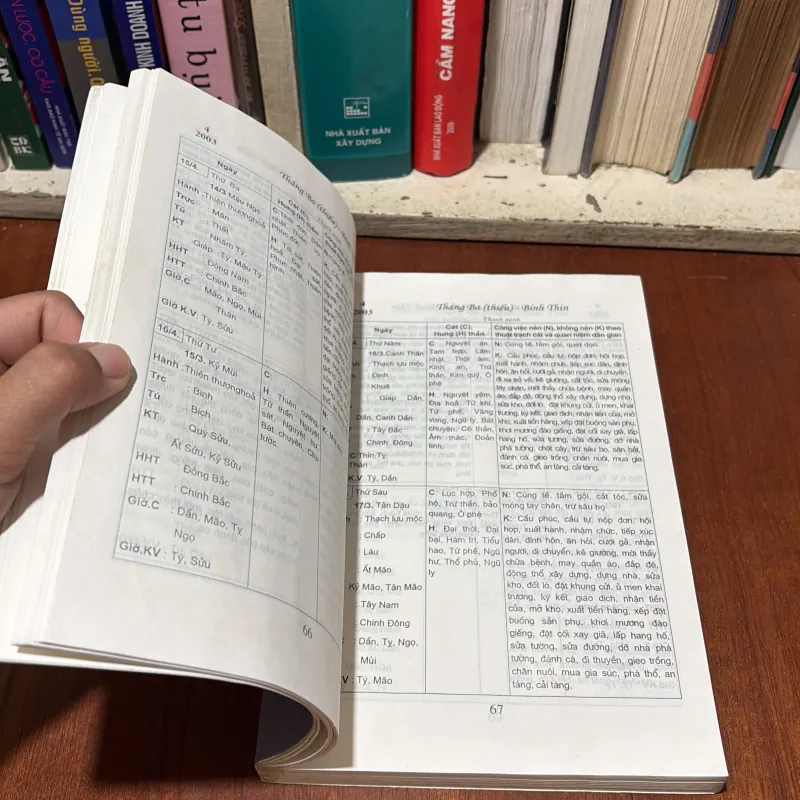 LƯỢC, CƠ CẤU
DÙNG NGƯỜI
KINH DOANH
NHÀ XUẤT BẢN
XÂY DỰNG
CẨM NANG
NHÀ XUẤT BẢN LAO ĐỘNG
4
2003
Tháng Ba (thiếu)
Ngày
Cát (C),
Hung (H) thần
15/4.
Thứ Ba
14/3 Mậu Ngọ
Hành :Thiên thượng hoả
Trực : Mãn
Tú : Thất
KT : Nhâm Tý,
Giáp Tý, Mậu Tý
HHT : Đông Nam
HTT : Chính Bắc
Giờ.C : Mão, Ngọ, Mùi
Thân
Giờ K.V: Tý, Sửu
16/4.
Thứ Tư
15/3. Kỷ Mùi
Hành :Thiên thượng hoả
Trc : Bình
Tú : Bích
KT : Quý Sửu.
Ất Sửu, Kỷ Sửu
HHT : Đông Bắc
HTT : Chính Bắc
Giờ.C : Dần, Mão, Tỵ
Ngọ
Giờ.KV: Tý, Sửu
66
4
2003
Tháng Ba (thiếu) - Bính Thìn
Thanh minh
Ngày
Cát (C).
Hung (H) thần
Công việc nên (N), không nên (K) theo
thuật trạch cát và quan niệm dân gian
Thứ Năm
16/3.Canh Thân
Thạch lựu mộc
: Định
: Khuê
Giáp Dần,
Dần, Canh Dần
: Tây Bắc
: Chính Đông
C:Thìn,Tỵ,
Thân
K.V: Tý, Dần
C: Nguyệt ân,
Tam hợp, Lâm
nhật, Thời âm,
Kính an, Trừ
thần, Kim quỹ, Ô
phệ
H: Nguyệt yếm,
Địa hoả, Tử khí,
Tứ phế, Vãng
vong, Ngũ ly, Bát
chuyên, Cô thần,
Âm mác, Đoản
tinh.
N: Cúng tế, tắm gội, quét dọn.
K: Cầu phúc, cầu tự, nộp đơn, hội họp,
xuất hành, nhậm chức, tiếp xúc dân, đính
hôn, ăn hỏi, cưới gả, nhận người, di chuyển,
đi xa trở về, kê giường, cắt tóc, sửa móng
tay chân, mời thầy chữa bệnh, may quần
áo, đắp đê, động thổ xây dựng, dựng nhà,
sửa kho, đốt lò, đặt khung cửi, ủ men, khai
trương, ký kết, giao dịch, nhận tiền của, mở
kho, xuất tiền hàng, xếp đặt buồng sản phụ,
khơi mương đào giếng, đặt cối xay giã, lấp
hang hố, sửa tường, sửa đường, dỡ nhà
phá tường, chặt cây, trừ sâu bọ, săn bắt,
đánh cá, gieo trồng, chăn nuôi, mua gia
súc, phá thổ, an táng, cải táng.
Thứ Sáu
17/3. Tân Dậu
: Thạch lựu mộc
: Chấp
: Lâu
: Ất Mão
Kỷ Mão, Tân Mão
: Tây Nam
: Chính Đông
: Dần, Tỵ, Ngọ,
Mùi
: Tý, Mão
C: Lục hợp, Phổ
hộ, Trừ thần, bảo
quang, Ô phệ
H: Đại thời, Đại
bại, Hàm trì, Tiểu
hao, Tứ phế, Ngũ
hư, Thổ phủ, Ngũ
ly
N: Cúng tế, tắm gội, cắt tóc, sửa
móng tay chân, trừ sâu bọ
K: Cầu phúc, cầu tự, nộp đơn, hội
họp, xuất hành, nhậm chức, tiếp xúc
dân, đính hôn, ăn hỏi, cưới gả, nhận
người, di chuyển, kê giường, mời thầy
chữa bệnh, may quần áo, đắp đê,
động thổ xây dựng, dựng nhà, sửa
kho, đốt lò, đặt khung cửi, ủ men khai
trương, ký kết, giao dịch, nhận tiền
của, mở kho, xuất tiền hàng, xếp đặt
buồng sản phụ, khơi mương đào
giếng, đặt cối xay giã, lấp hang hố,
sửa tường, sửa đường, dỡ nhà phá
tường, đánh cá, đi thuyền, gieo trồng,
chăn nuôi, mua gia súc, phá thổ, an
táng, cải táng.
67